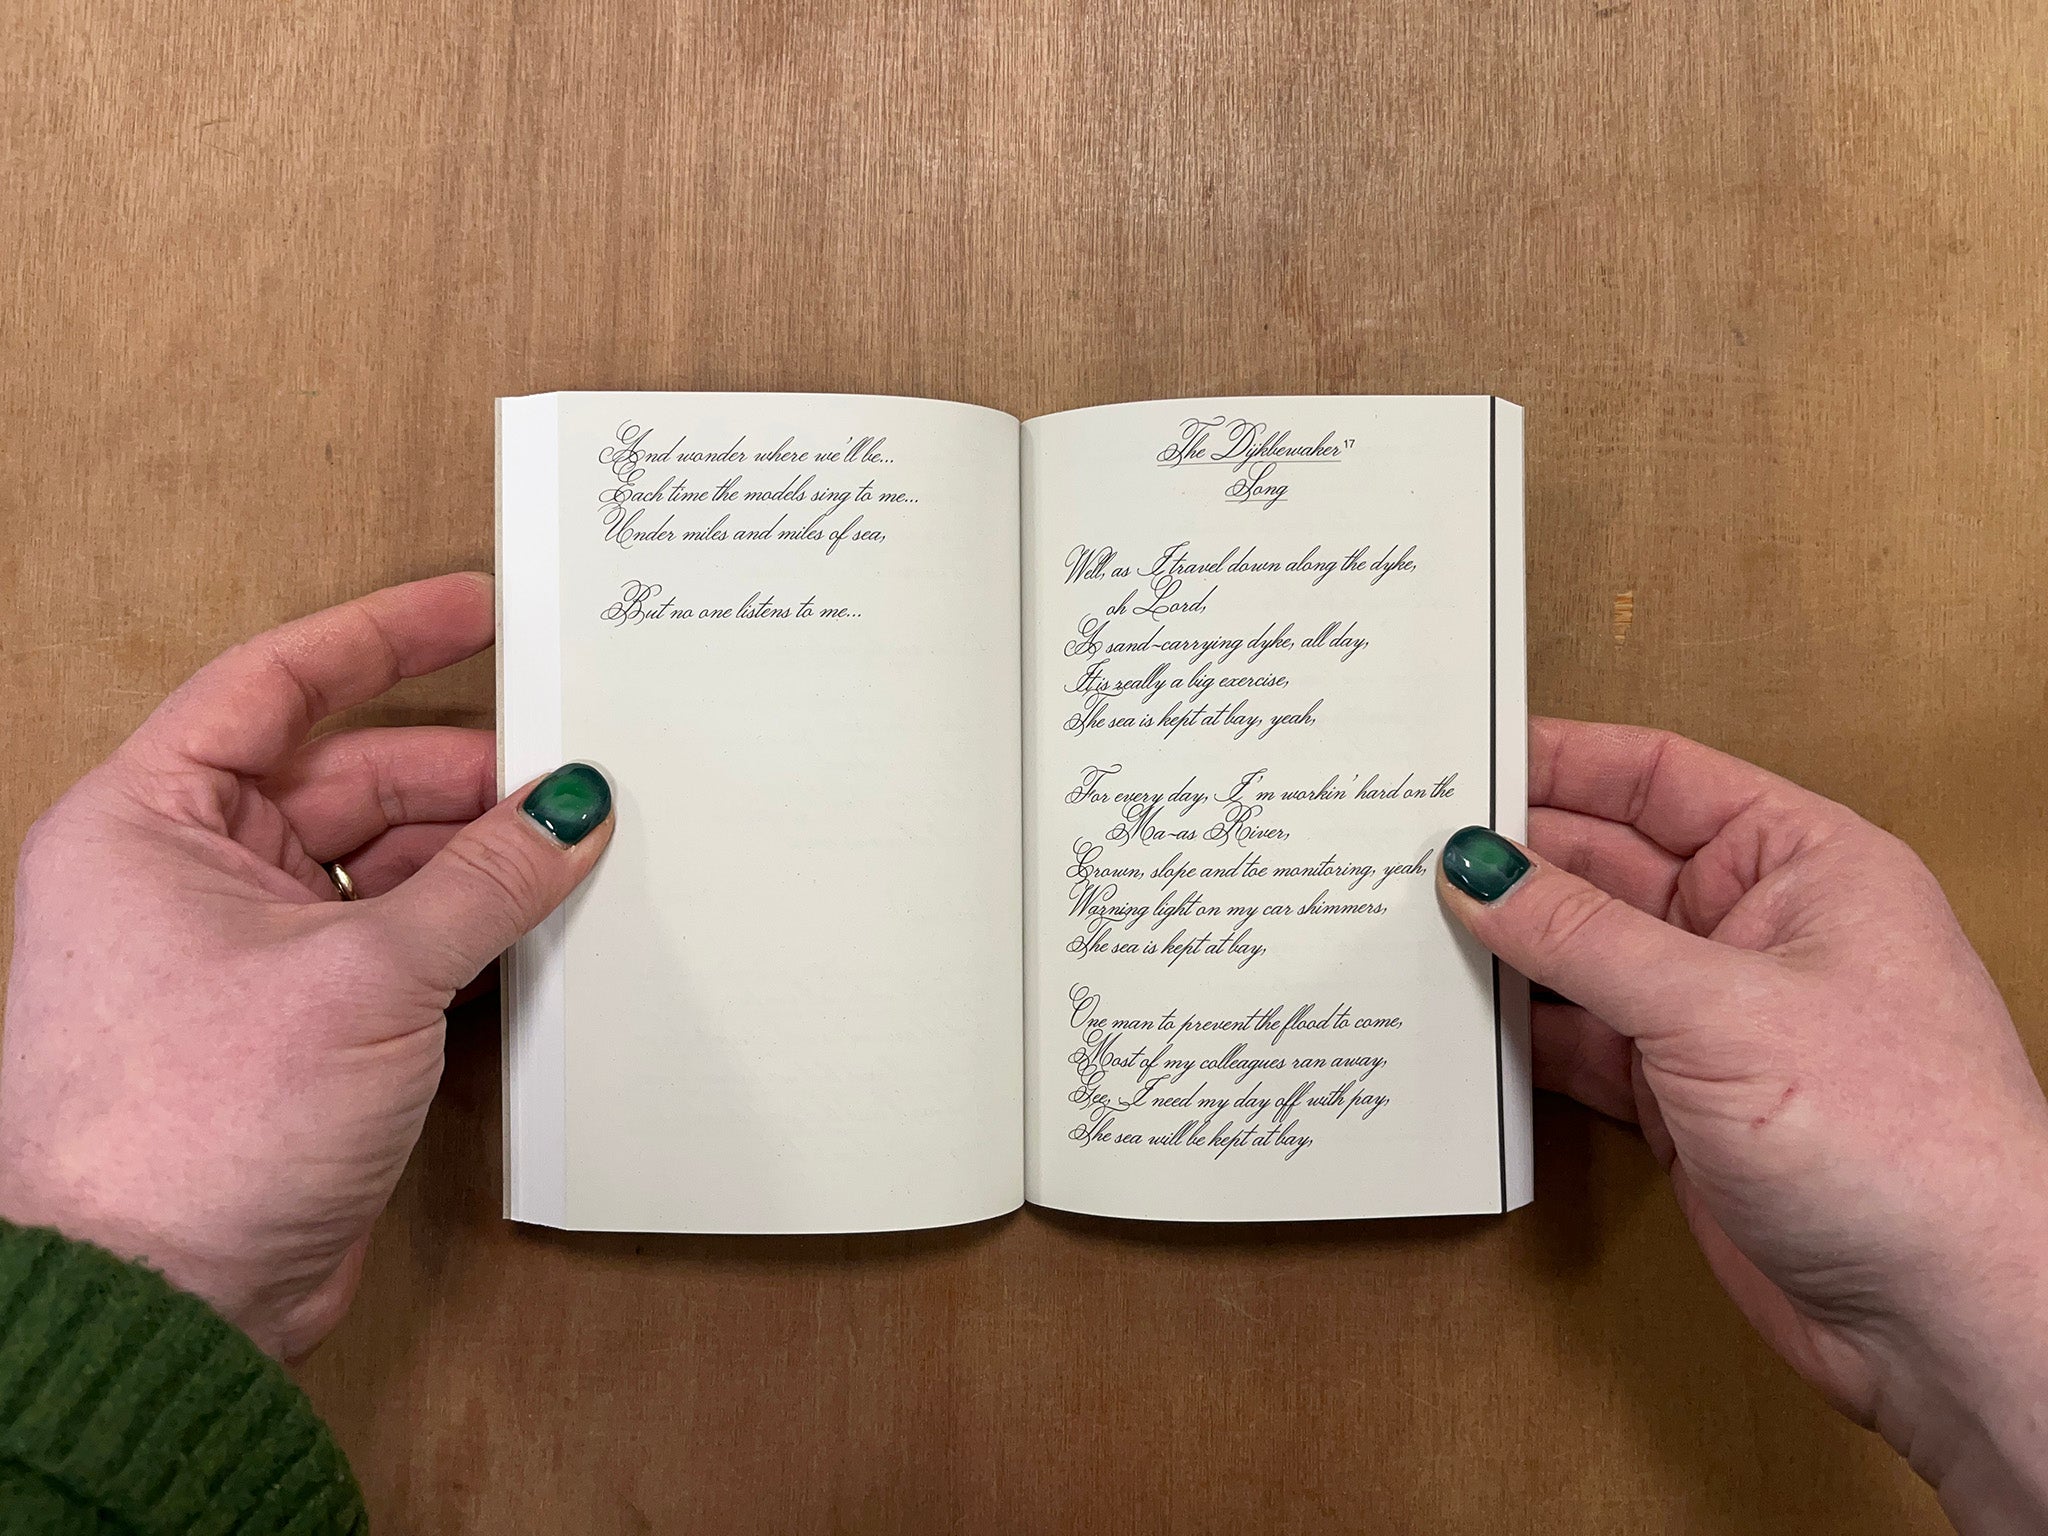 And wonder where we'll be...
Each time the models sing to me...
Under miles and miles of sea,
But no one listens to me...
The Dijkbewaker17
Song
Well, as I travel down along the dyke,
oh Lord,
A sand-carrying dyke, all day,
It is really a big exercise,
The sea is kept at bay, yeah,
For every day, I'm workin' hard on the
Ma-as River,
Crown, slope and toe monitoring, yeah,
Warning light on my car shimmers,
The sea is kept at bay,
One man to prevent the flood to come,
Most of my colleagues ran away,
Gee, I need my day off with pay,
The sea will be kept at bay,